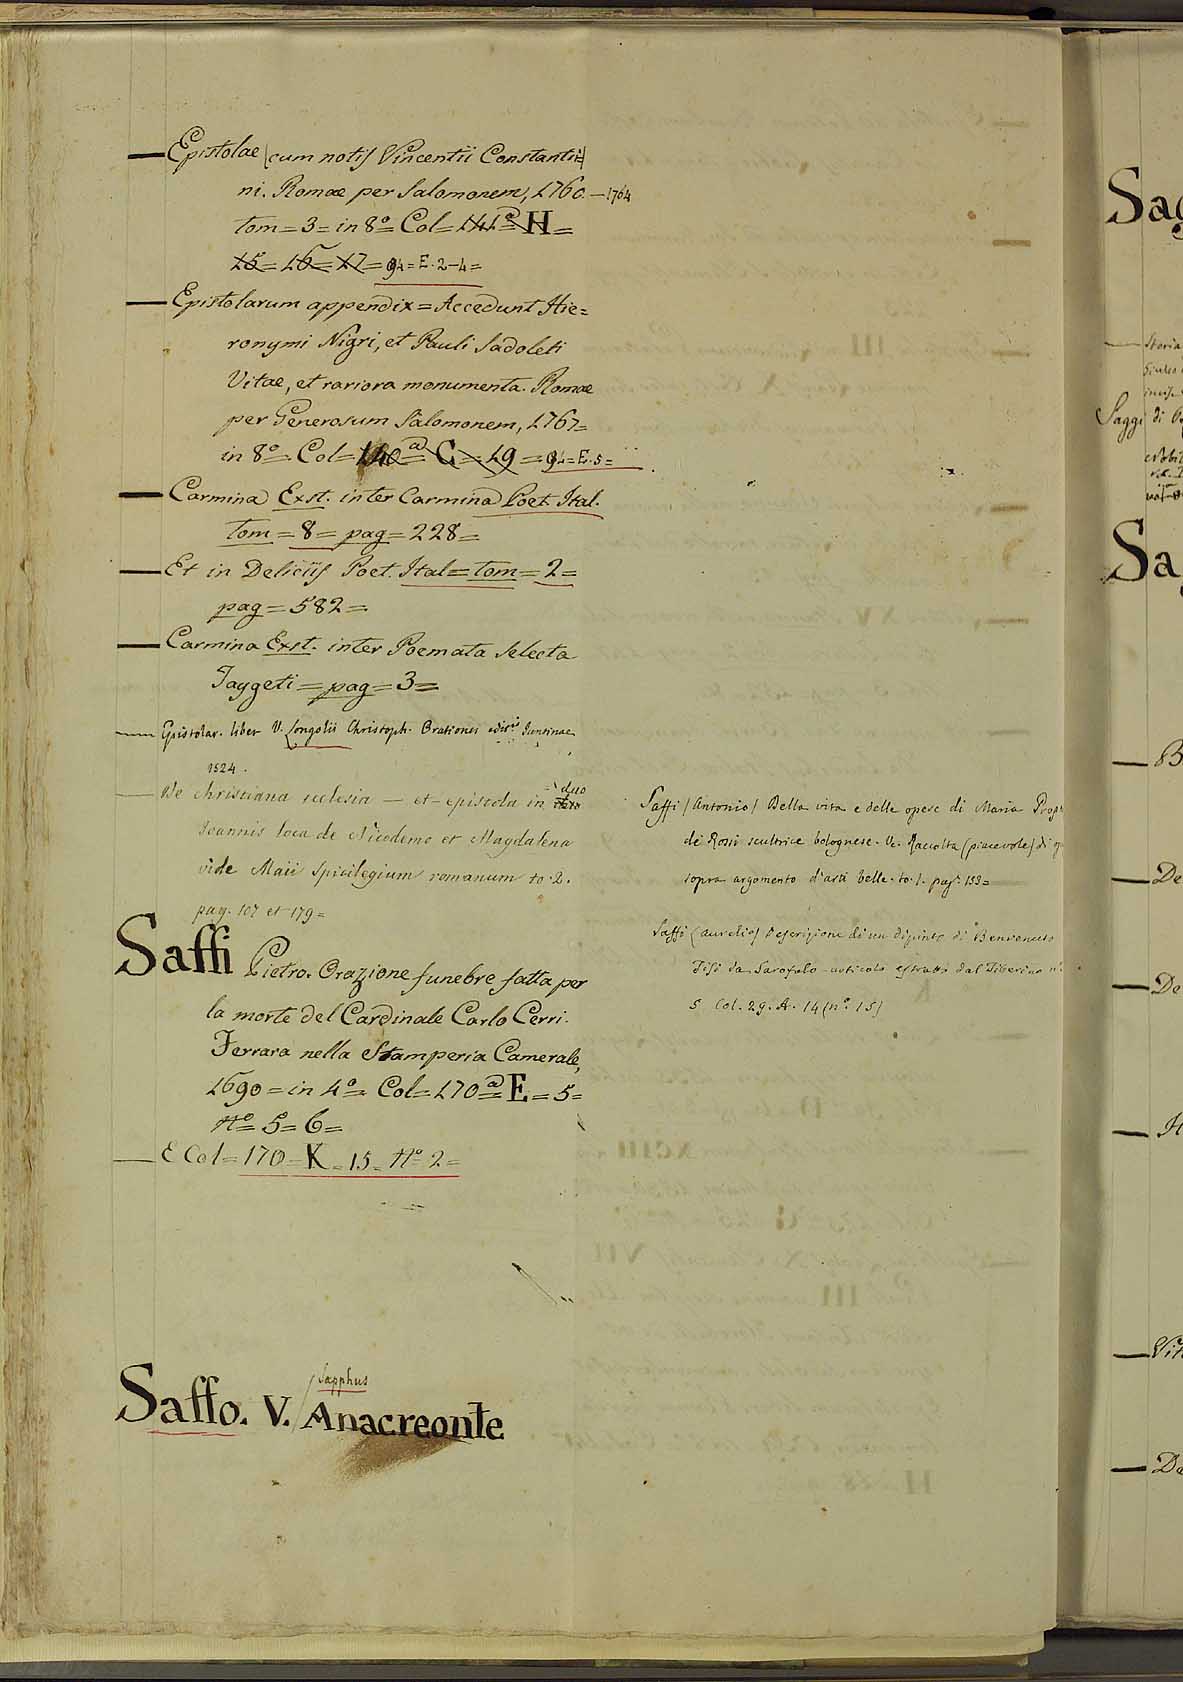 — Epistolae (cum notis Vincentii Constanti=
ni. Romae per Salomonem, 1760. — 1764
tom = 3 = in 8º = Col = 141ª = H =
15 = 16 = 17 = 94 = E. 2-4 =
— Epistolarum appendix = Accedunt Hie=
ronymi Nigri, et Pauli Sadoleti
Vitae, et rariora monumenta. Romae
per Generosum Salomonem, 1767 =
in 8º = Col = 140ª = C = 19 = 94 = E. 5 =
— Carmina Exst. inter Carmina Poet. Ital.
tom = 8 = pag = 228 =
— Et in Deliciis Poet. Ital = tom = 2 =
pag = 582 =
— Carmina Exst. inter Poemata Selecta
Taygeti = pag = 3 =
— Epistolar. liber V. Longolii Christoph. Orationes edit.s Juntinae
1524.
— De christiana ecclesia — et epistola in duo
Joannis loca de Nicodemo et Magdalena
vide Maii Spicilegium romanum to. 2.
pag. 107 et 179 =
Saffi Pietro. Orazione funebre fatta per
la morte del Cardinale Carlo Cerri.
Ferrara nella Stamperia Camerale,
1690 = in 4º = Col = 170ª = E = 5 =
Nº = 5 = 6 =
— E Col = 170 = K = 15 = Nº 2 =
Sapphus
Saffo. V. Anacreonte
Saffi (Antonio) Della vita e delle opere di Maria Prop
de Rossi scultrice bolognese. Ve. Raccolta (piacevole) di
sopra argomento d'arti belle. to. 1. pag. 153 =
Saffi (aurelio) Descrizione di un dipinto di Benvenuto
Tisi da Garofalo articolo estratto dal Tiberino nº
5 Col. 29. A. 14 (nº 15)
Sag
— Storia
Saggi di
Sag
— B
— De
— De
— H
— Vit
— De